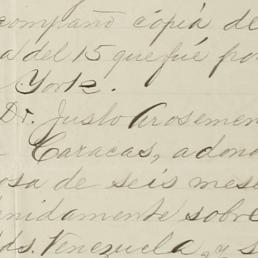 acompaño copia de
a del 15 que fué por
York.
Dr. Justo Arosemen
Caracas, adond
osa de seis mese
enidamente sobre
ds. Venezuela, y s